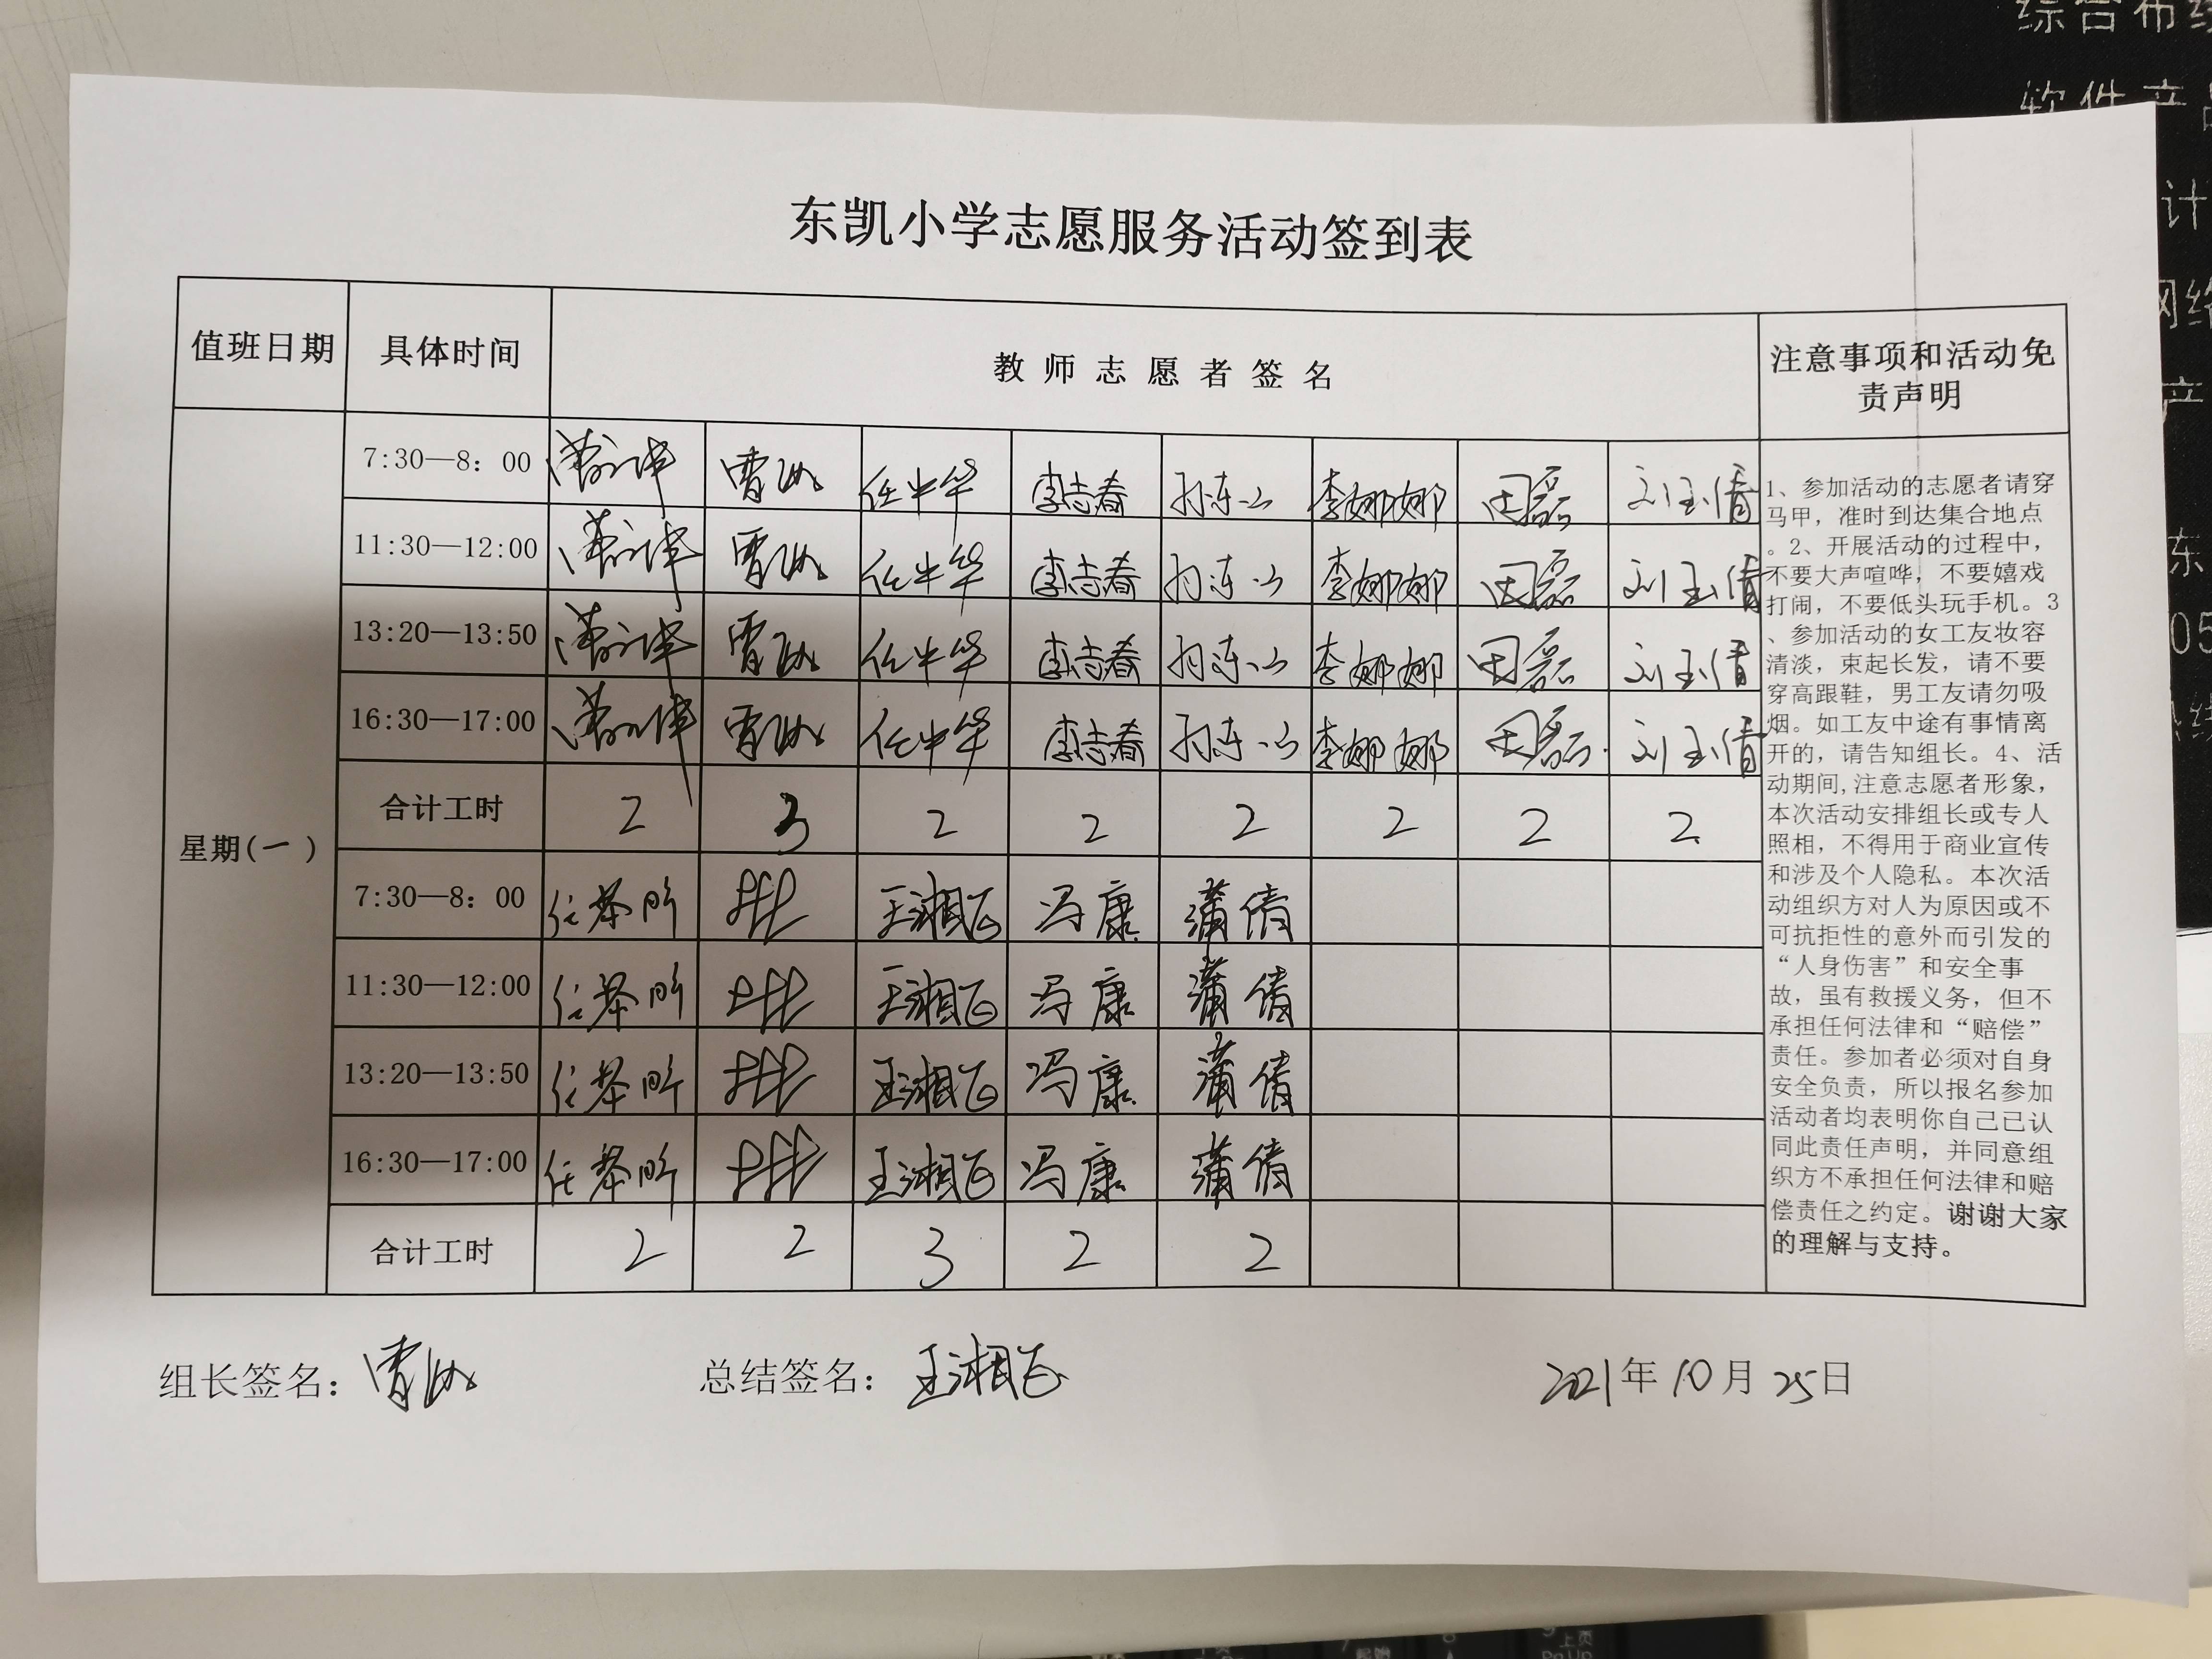 东凯小学志愿服务活动签到表
值班日期 具体时间 教师志愿者签名 注意事项和活动免责声明
星期(一)
7:30—8：00 任中华 李志春 孙东山 李娜娜 田磊 刘玉倩
11:30—12:00 任中华 李志春 孙东山 李娜娜 田磊 刘玉倩
13:20—13:50 任中华 李志春 孙东山 李娜娜 田磊 刘玉倩
16:30—17:00 任中华 李志春 孙东山 李娜娜 田磊 刘玉倩
合计工时 2 3 2 2 2 2 2 2
7:30—8：00 王湘飞 冯康 蒲倩
11:30—12:00 王湘飞 冯康 蒲倩
13:20—13:50 王湘飞 冯康 蒲倩
16:30—17:00 王湘飞 冯康 蒲倩
合计工时 2 2 3 2 2
1、参加活动的志愿者请穿
马甲，准时到达集合地点
。2、开展活动的过程中，
不要大声喧哗，不要嬉戏
打闹，不要低头玩手机。3
、参加活动的女工友妆容
清淡，束起长发，请不要
穿高跟鞋，男工友请勿吸
烟。如工友中途有事情离
开的，请告知组长。4、活
动期间,注意志愿者形象，
本次活动安排组长或专人
照相，不得用于商业宣传
和涉及个人隐私。本次活
动组织方对人为原因或不
可抗拒性的意外而引发的
“人身伤害”和安全事
故，虽有救援义务，但不
承担任何法律和“赔偿”
责任。参加者必须对自身
安全负责，所以报名参加
活动者均表明你自己己认
同此责任声明，并同意组
织方不承担任何法律和赔
偿责任之约定。谢谢大家
的理解与支持。
组长签名： 总结签名：王湘飞 2021年10月25日
综合布线
软件产品
计
网络
产
东
05